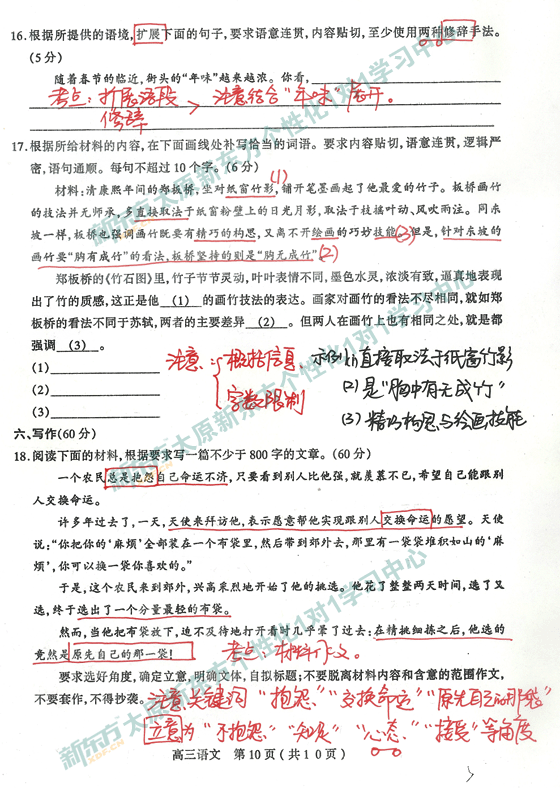 16.根据所提供的语境,扩展下面的句子,要求语意连贯,内容贴切,至少使用两种修辞手法。
(5分)
随着春节的临近,街头的“年味”越来越浓。你看,
考点:扩展语段 > 注意结合“年味”展开。
修辞
17.根据所给材料的内容,在下面画线处补写恰当的词语。要求内容贴切,语意连贯,逻辑严
密,语句通顺。每句不超过10个字。(6分)
(1)
材料:清康熙年间的郑板桥,坐对纸窗竹影,铺开笔墨画起了他最爱的竹子。板桥画竹
的技法并无师承,多直接取法于纸窗粉壁上的日光月影,取法于枝摇叶动、风吹雨注。同东
坡一样,板桥也强调画竹既要有精巧的构思,又离不开绘画的巧妙技能(3)但是,针对东坡的
画竹要“胸有成竹”的看法,板桥坚持的则是“胸无成竹”(2)
郑板桥的《竹石图》里,竹子节节灵动,叶叶表情不同,墨色水灵,浓淡有致,逼真地表现
出了竹的质感,这正是他 (1) 的画竹技法的表达。画家对画竹的看法不尽相同,就如郑
板桥的看法不同于苏轼,两者的主要差异 (2) 。但两人在画竹上也有相同之处,就是都
强调 (3) 。
注意:概括信息 示例(1)直接取法于纸窗竹影
(1)
字数限制 (2)是“胸中有无成竹”
(2)
(3)
(3)精巧构思与绘画技能
六、写作(60分)
18.阅读下面的材料,根据要求写一篇不少于800字的文章。(60分)
一个农民总是抱怨自己命运不济,只要看到别人比他强,就羡慕不已,希望自己能跟别
人交换命运。
许多年过去了,一天,天使来拜访他,表示愿意帮他实现跟别人交换命运的愿望。天使
说:“你把你的‘麻烦’全部装在一个布袋里,然后带到郊外去,那里有一袋袋堆积如山的‘麻
烦’,你可以换一袋你喜欢的。”
于是,这个农民来到郊外,兴高采烈地开始了他的挑选。他花了整整两天时间,选了又
选,终于选出了一个分量最轻的布袋。
然而,当他把布袋放下,迫不及待地打开看时几乎晕了过去:在精挑细拣之后,他选的
竟然是原先自己的那一袋!
考点:材料作文。
要求选好角度,确定立意,明确文体,自拟标题;不要脱离材料内容和含意的范围作文,
不要套作,不得抄袭。
注意关键词“抱怨”“交换命运”“原先自己的那一袋”
立意为“不抱怨”“知足”“心态”“接受”等角度
高三语文 第10页(共10页)
新东方太原新东方个性化1对1学习中心
新东方
XDF.CN